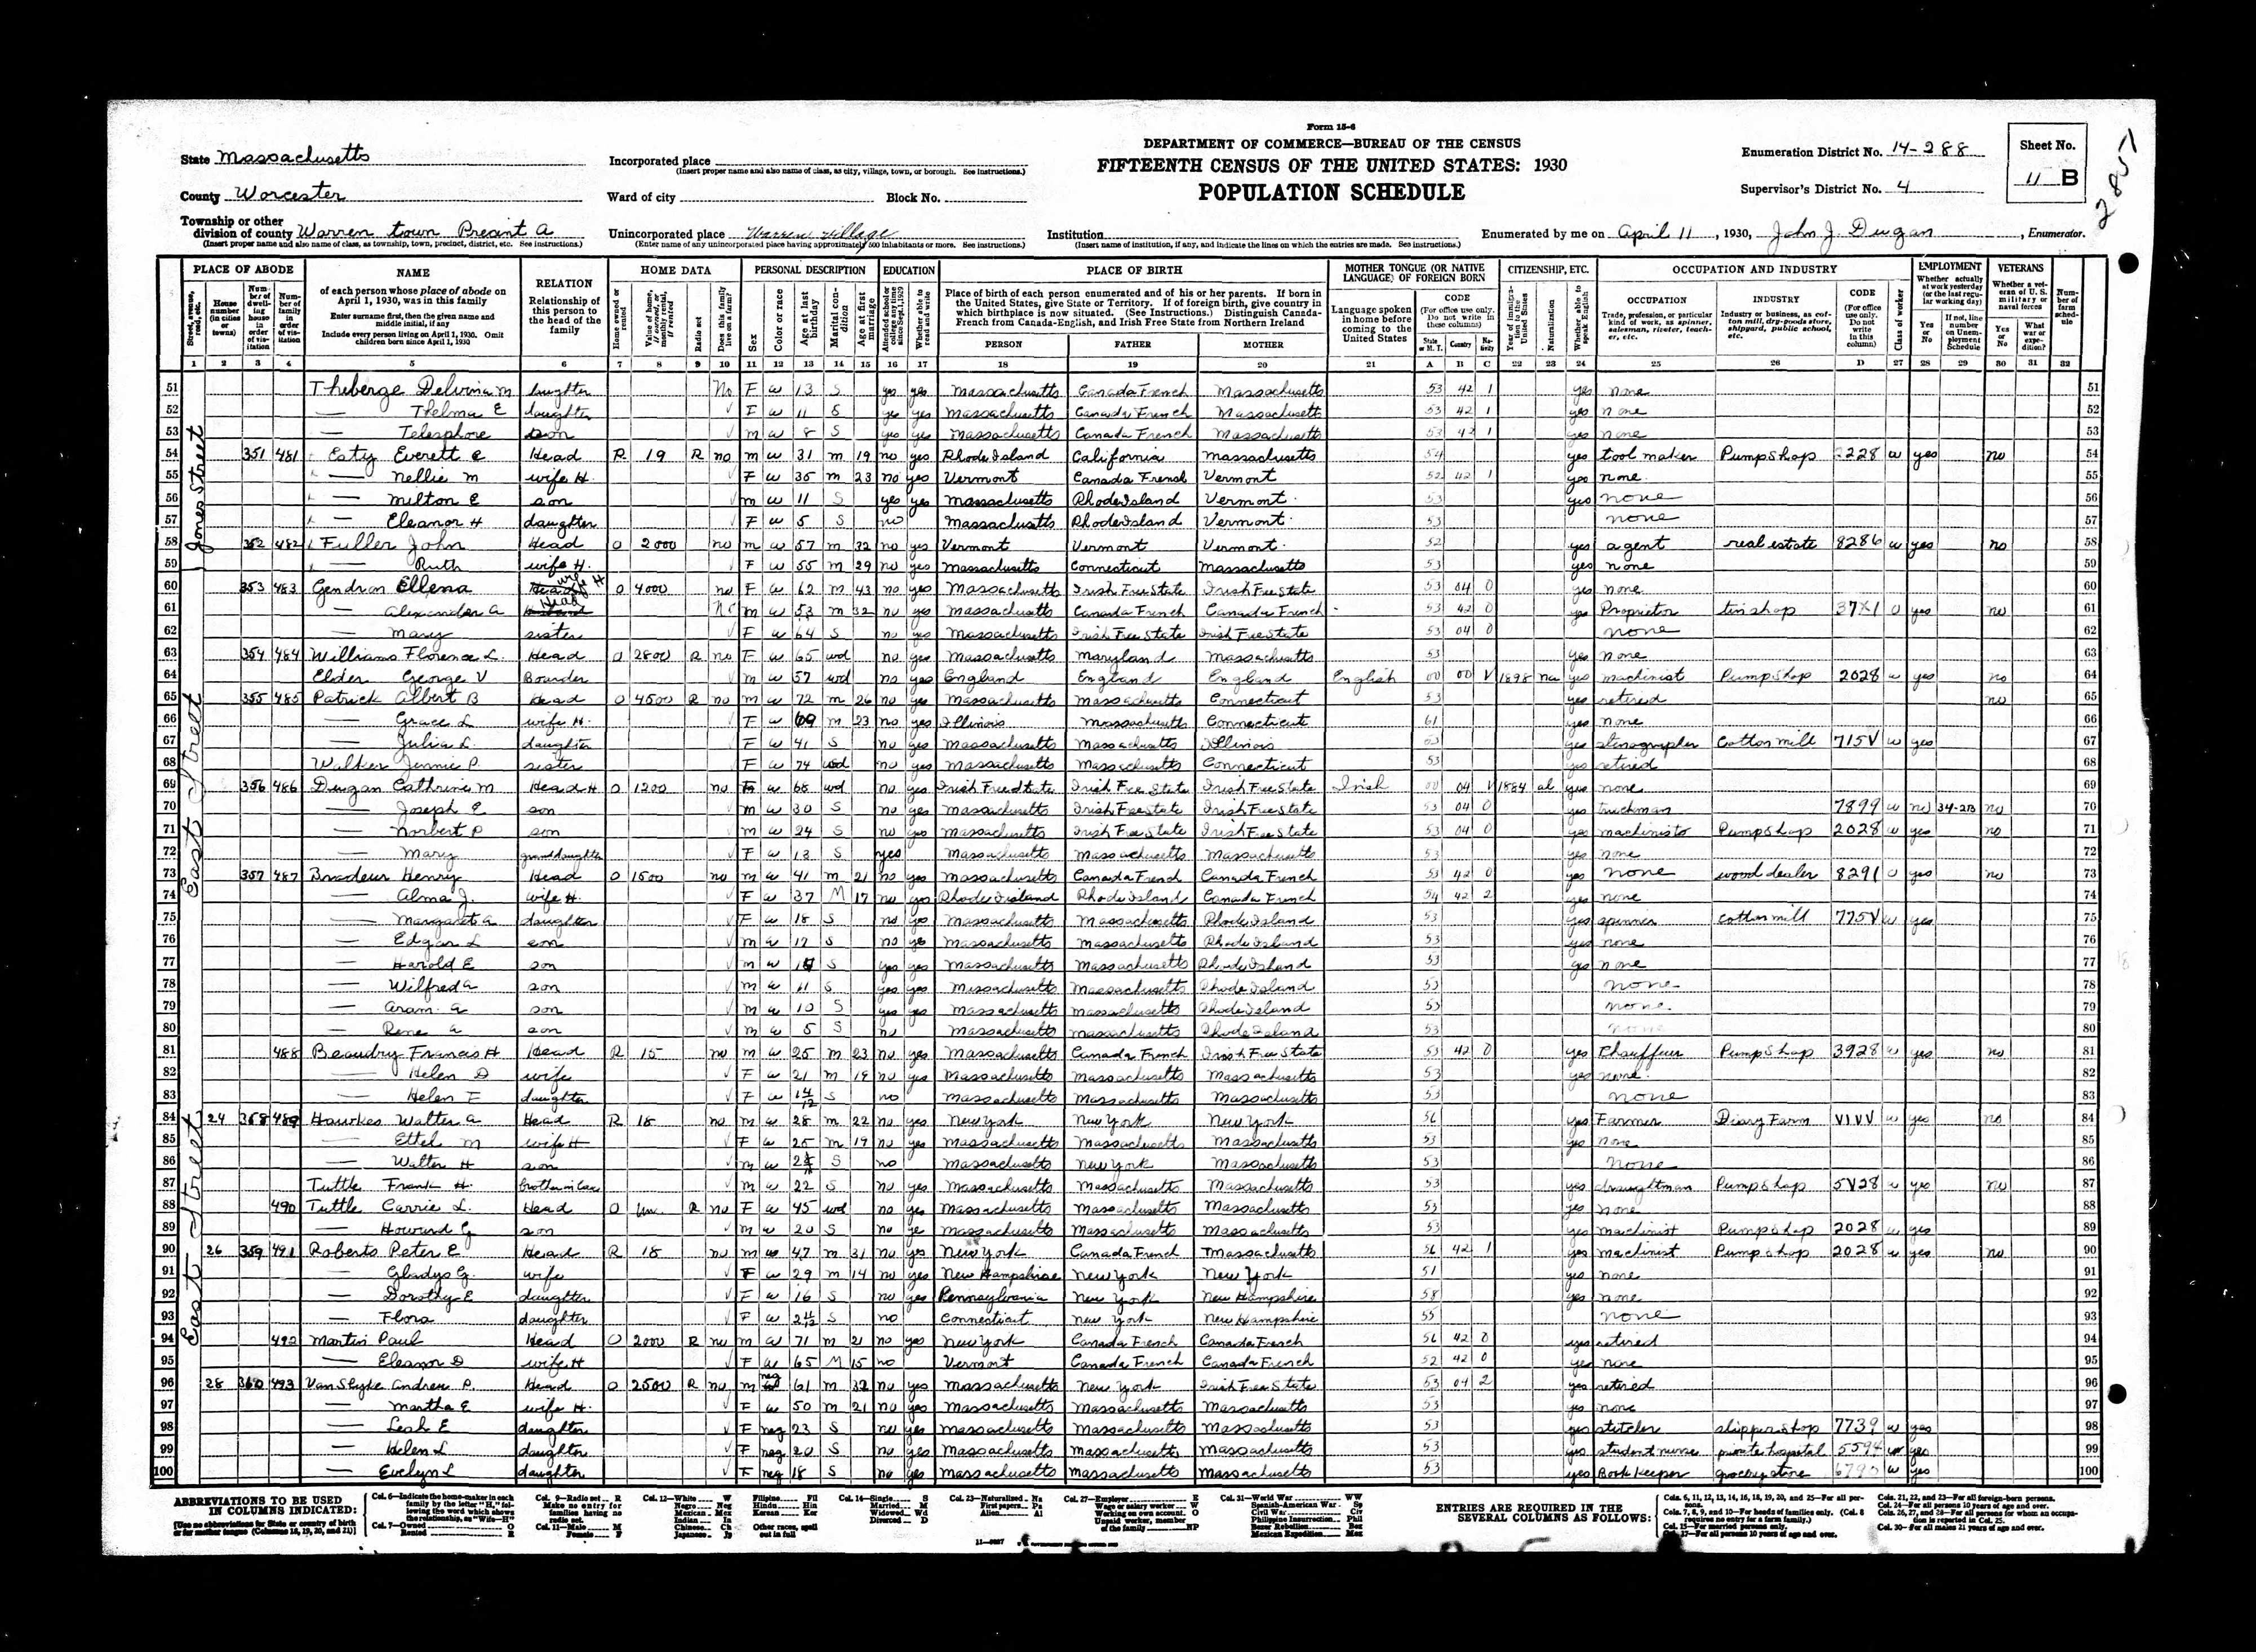 Form 15-6
DEPARTMENT OF COMMERCE—BUREAU OF THE CENSUS
FIFTEENTH CENSUS OF THE UNITED STATES: 1930
POPULATION SCHEDULE
State Massachusetts
County Worcester
Township or other division of county Warren town Precint A
(Insert proper name and also name of class, as township, town, precinct, district, etc. See instructions.)
Incorporated place
(Insert proper name and also name of class, as city, village, town, or borough. See instructions.)
Ward of city Block No.
Unincorporated place Warren Village
(Enter name of any unincorporated place having approximately 500 inhabitants or more. See instructions.)
Institution
(Insert name of institution, if any, and indicate the lines on which the entries are made. See instructions.)
Enumeration District No. 14-288
Supervisor's District No. 4
Sheet No. 11 B
Enumerated by me on April 11, 1930, John J. Dugan, Enumerator.
PLACE OF ABODE NAME RELATION HOME DATA PERSONAL DESCRIPTION EDUCATION PLACE OF BIRTH MOTHER TONGUE (OR NATIVE LANGUAGE) OF FOREIGN BORN CITIZENSHIP, ETC. OCCUPATION AND INDUSTRY EMPLOYMENT VETERANS
PERSON FATHER MOTHER
1 2 3 4 5 6 7 8 9 10 11 12 13 14 15 16 17 18 19 20 21 A B C 22 23 24 25 26 D 27 28 29 30 31 32
Jones Street
51 Theberge Delvina M daughter No F W 13 S yes yes Massachusetts Canada French Massachusetts 53 42 1 yes none 51
52 — Thelma E daughter F W 11 S yes yes Massachusetts Canada French Massachusetts 53 42 1 yes none 52
53 — Telesphore son m W 8 S yes yes Massachusetts Canada French Massachusetts 53 42 1 yes none 53
54 351 481 Esty Everett E Head R 19 R no m W 31 m 19 no yes Rhode Island California Massachusetts 54 yes tool maker Pump Shop 2228 w yes no 54
55 — Nellie M wife H. F W 35 m 23 no yes Vermont Canada French Vermont 52 42 1 yes none 55
56 — Milton E son m W 11 S yes yes Massachusetts Rhode Island Vermont 53 yes none 56
57 — Eleanor H daughter F W 5 S no Massachusetts Rhode Island Vermont 53 none 57
58 352 482 Fuller John Head O 2000 no m W 57 m 32 no yes Vermont Vermont Vermont 52 yes agent real estate 8286 w yes no 58
59 — Ruth wife H. F W 55 m 29 no yes Massachusetts Connecticut Massachusetts 53 yes none 59
60 353 483 Gendron Ellena wife H O 4000 no F W 62 m 43 no yes Massachusetts Irish Free State Irish Free State 53 04 0 yes none 60
61 — Alexander A Head No m W 53 m 32 no yes Massachusetts Canada French Canada French 53 42 0 yes Proprietor tin shop 37X1 O yes no 61
62 — Mary sister F W 64 S no yes Massachusetts Irish Free State Irish Free State 53 04 0 none 62
East Street
63 354 484 Williams Florence L. Head O 2800 R no F W 65 wd no yes Massachusetts Maryland Massachusetts 53 yes none 63
64 Elder George V Boarder m W 57 wd no yes England England England English 00 00 V 1898 na yes machinist Pump Shop 2028 w yes no 64
65 355 485 Patrick Albert B Head O 4500 R no m W 72 m 26 no yes Massachusetts Massachusetts Connecticut 53 yes retired no 65
66 — Grace L wife H. F W 69 m 23 no yes Illinois Massachusetts Connecticut 61 yes none 66
67 — Julia L. daughter F W 41 S no yes Massachusetts Massachusetts Illinois 53 yes stenographer Cotton mill 715V w yes 67
68 Walker Jennie P. sister F W 74 wd no yes Massachusetts Massachusetts Connecticut 53 yes retired 68
69 356 486 Dungan Cathrine M Head H O 1200 no F W 68 wd no yes Irish Free State Irish Free State Irish Free State Irish 00 04 V 1884 al yes none 69
70 — Joseph E son m W 30 S no yes Massachusetts Irish Free State Irish Free State 53 04 0 yes truckman 7899 w no no 70
71 — Norbert P son m W 24 S no yes Massachusetts Irish Free State Irish Free State 53 04 0 yes machinist Pump Shop 2028 w yes no 71
72 — Mary granddaughter F W 13 S yes Massachusetts Massachusetts Massachusetts 53 yes none 72
73 357 487 Bradeur Henry Head O 1500 no m W 41 m 21 no yes Massachusetts Canada French Canada French 53 42 0 yes none wood dealer 8291 O yes no 73
74 — Alma J. wife H. F W 37 M 17 no yes Rhode Island Rhode Island Canada French 54 42 2 yes none 74
75 — Margaret A daughter F W 18 S no yes Massachusetts Massachusetts Rhode Island 53 yes spinner Cotton mill 775V w yes 75
76 — Edgar L son m W 17 S no yes Massachusetts Massachusetts Rhode Island 53 yes none 76
77 — Harold E son m W S yes yes Massachusetts Massachusetts Rhode Island 53 yes none 77
78 — Wilfred A son m W 11 S yes yes Massachusetts Massachusetts Rhode Island 53 none 78
79 — Aram A son m W 10 S yes yes Massachusetts Massachusetts Rhode Island 53 none 79
80 — Rene A son m W 5 S no Massachusetts Massachusetts Rhode Island 53 none 80
81 488 Beaudry Francis H Head R 15 no m W 25 m 23 no yes Massachusetts Canada French Irish Free State 53 42 0 yes Chauffeur Pump Shop 3928 w yes no 81
82 — Helen D wife F W 21 m 19 no yes Massachusetts Massachusetts Massachusetts 53 yes none 82
83 — Helen F daughter F W S no Massachusetts Massachusetts Massachusetts 53 none 83
East Street
84 24 358 489 Hawkes Walter A Head R 18 no m W 28 m 22 no yes New York New York New York 56 yes Farmer Diary Farm VIVV w yes no 84
85 — Ethel M wife H F W 25 m 19 no yes Massachusetts Massachusetts Massachusetts 53 yes none 85
86 — Walter H son m W S no Massachusetts New York Massachusetts 53 none 86
87 Tuttle Frank H. brother in law m W 22 S no yes Massachusetts Massachusetts Massachusetts 53 yes draughtman Pump Shop 5V28 w yes no 87
88 490 Tuttle Carrie L. Head O Un. R no F W 45 wd no yes Massachusetts Massachusetts Massachusetts 53 yes none 88
89 — Howard G son m W 20 S no ye Massachusetts Massachusetts Massachusetts 53 yes machinist Pump Shop 2028 w yes 89
90 26 359 491 Roberts Peter E Head R 18 no m W 47 m 31 no yes New York Canada French Massachusetts 56 42 1 yes machinist Pump Shop 2028 w yes no 90
91 — Gladys G. wife F W 29 m 14 no yes New Hampshire New York New York 51 yes none 91
92 — Dorothy E daughter F W 16 S no yes Pennsylvania New York New Hampshire 58 yes none 92
93 — Flora daughter F W S no Connecticut New York New Hampshire 55 none 93
94 492 Martin Paul Head O 2000 R no m W 71 m 21 no yes New York Canada French Canada French 56 42 0 yes retired 94
95 — Eleanor D wife H F W 65 M 15 no Vermont Canada French Canada French 52 42 0 yes none 95
96 28 360 493 Van Slyke Andrew P. Head O 2500 R no m neg 61 m 32 no yes Massachusetts New York Irish Free State 53 04 2 yes retired 96
97 — Martha E wife H. F W 50 m 21 no yes Massachusetts Massachusetts Massachusetts 53 yes none 97
98 — Leah E daughter F neg 23 S no yes Massachusetts Massachusetts Massachusetts 53 yes stitcher slipper shop 7739 w yes 98
99 — Helen L daughter F neg 20 S no yes Massachusetts Massachusetts Massachusetts 53 yes student nurse private hospital 5594 w yes 99
100 — Evelyn L daughter F neg 18 S no yes Massachusetts Massachusetts Massachusetts 53 yes Book Keeper grocery store 6790 w yes 100
ABBREVIATIONS TO BE USED IN COLUMNS INDICATED:
ENTRIES ARE REQUIRED IN THE SEVERAL COLUMNS AS FOLLOWS: